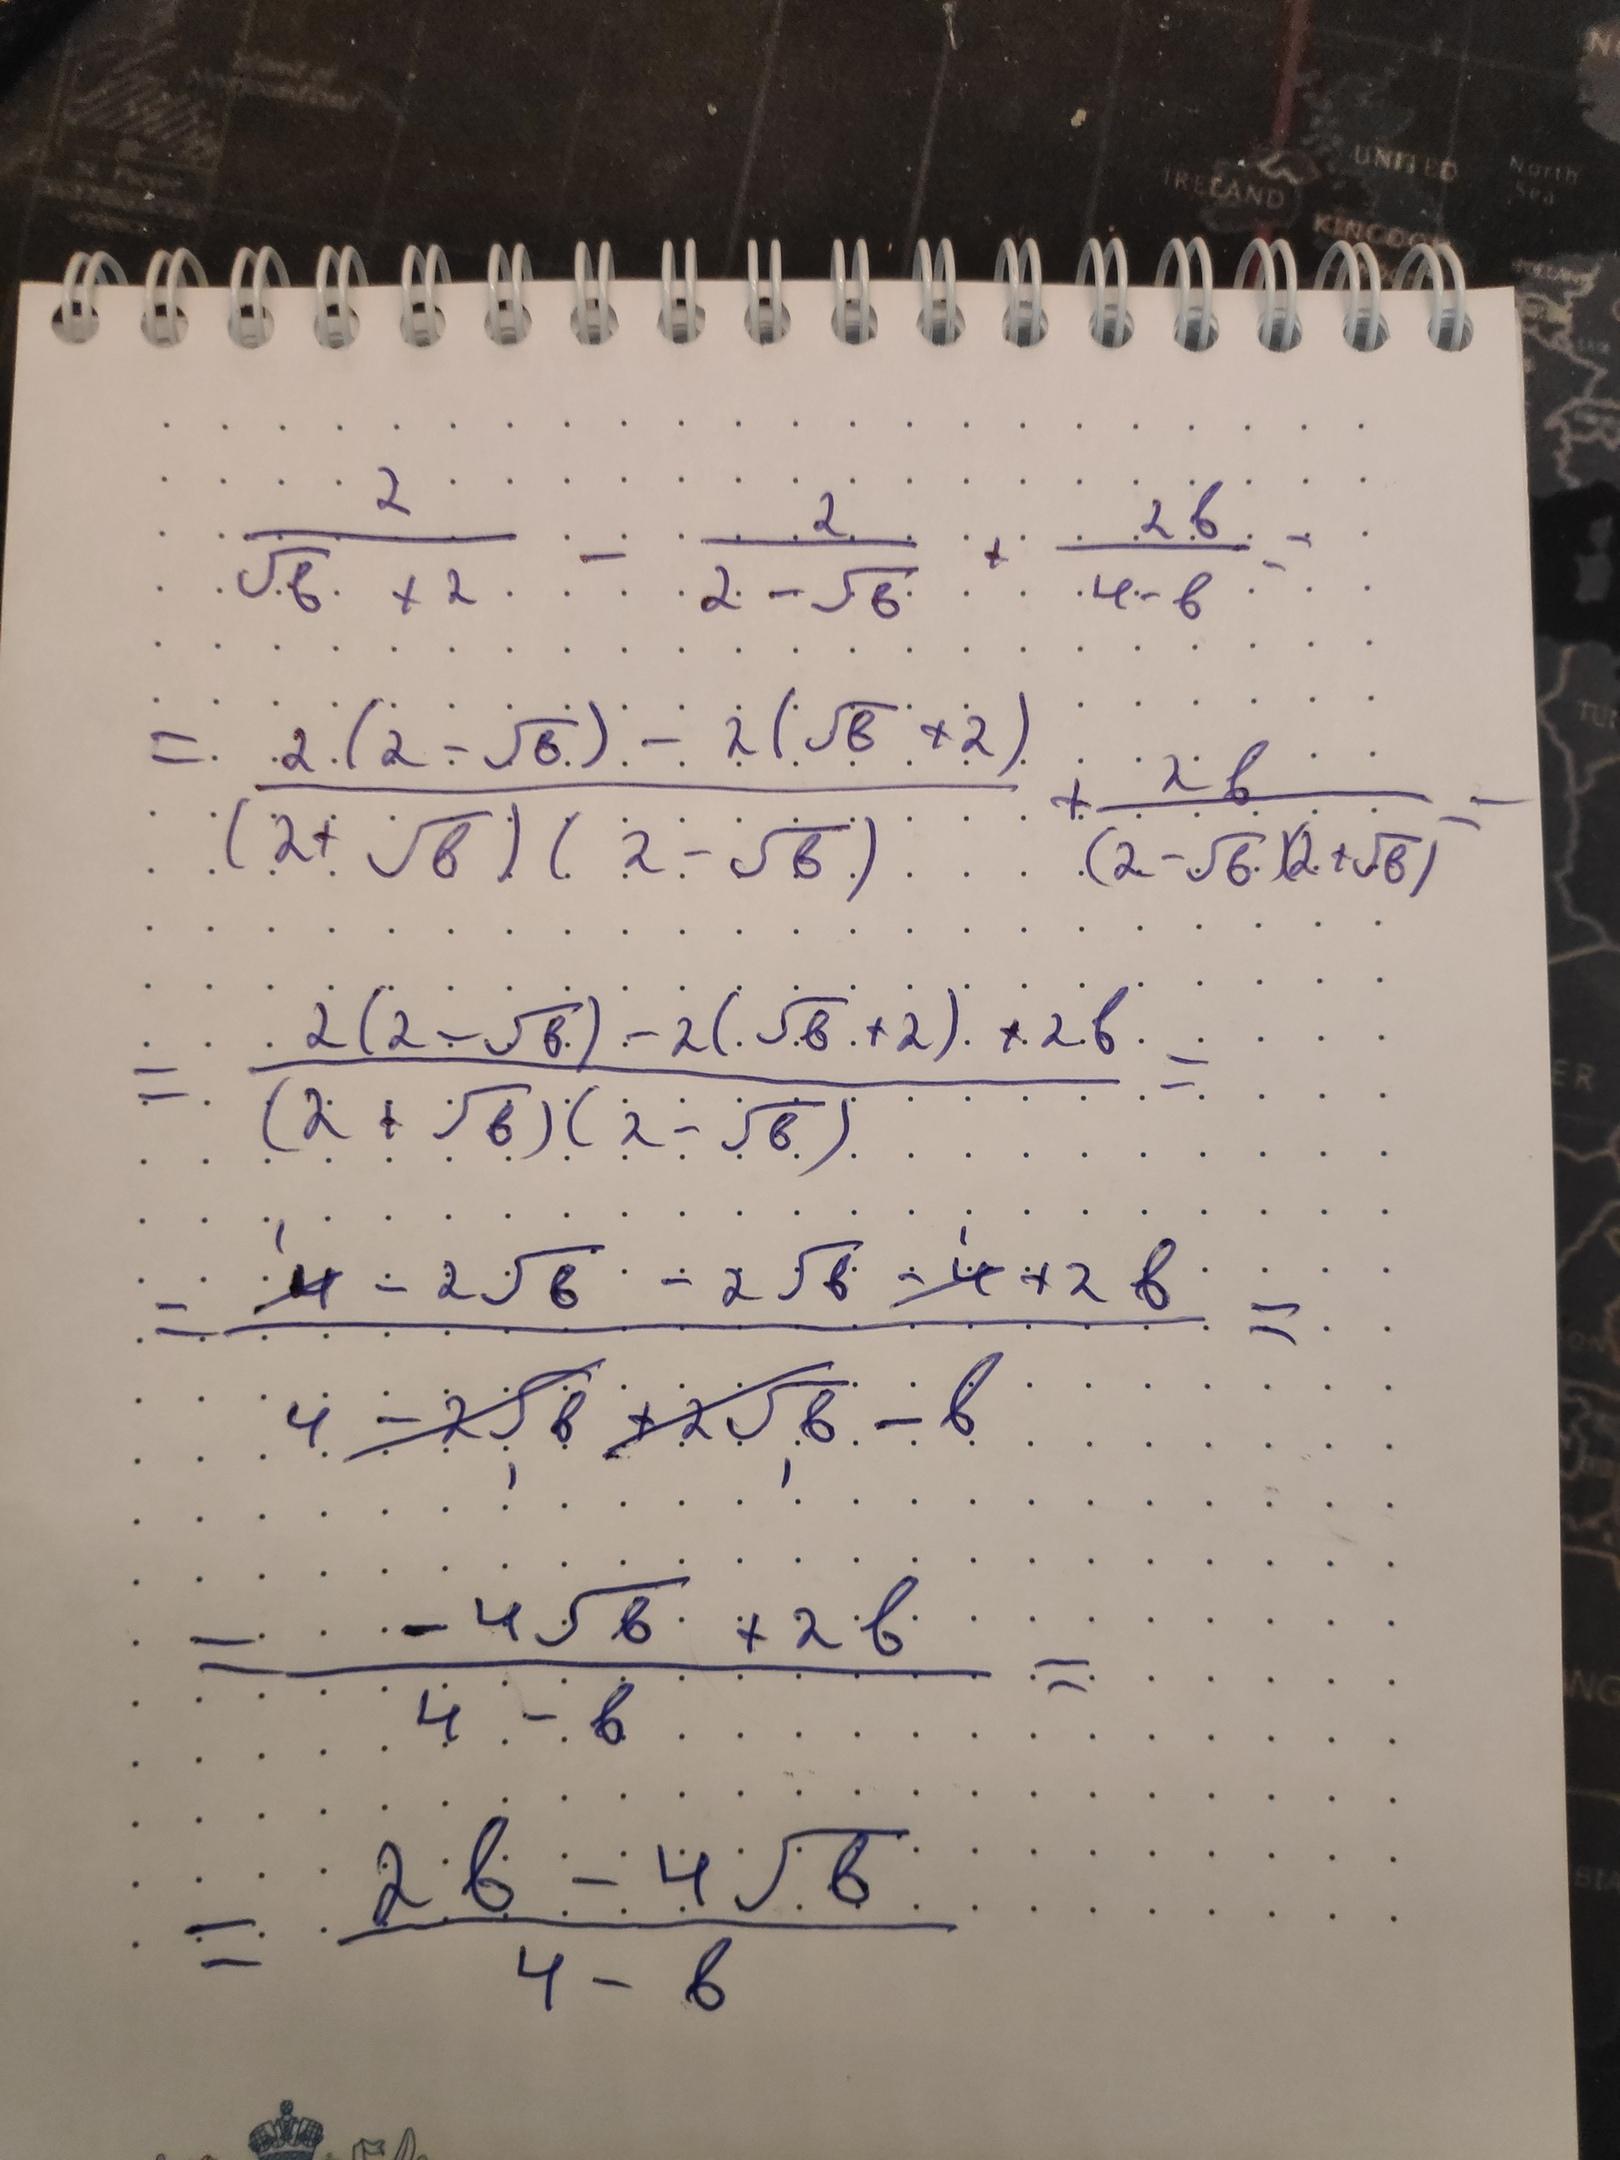 IRELAND UNITED KINGDOM North Sea
2/(√b + 2) - 2/(2 - √b) + 2b/(4 - b) =
= (2(2 - √b) - 2(√b + 2))/((2 + √b)(2 - √b)) + 2b/((2 - √b)(2 + √b)) =
= (2(2 - √b) - 2(√b + 2) + 2b)/((2 + √b)(2 - √b)) =
= (4 - 2√b - 2√b - 4 + 2b)/(4 - 2√b + 2√b - b) =
= (-4√b + 2b)/(4 - b) =
= (2b - 4√b)/(4 - b)